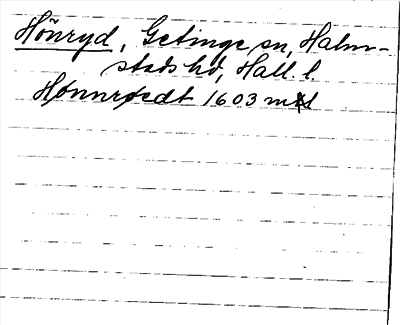 Hönryd, Getinge sn, Halm-
stads hd, Hall. l.
Hønnrødt 1603